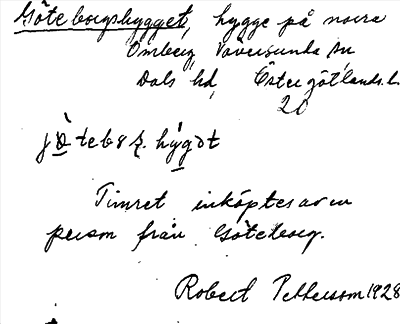 Göteborgshygget, hygge på norra
Omberg Väversunda sn
Dals hd, Östergötlands l.
20
Timret inköptes av en
person från Göteborg.
Robert Pettersson 1928